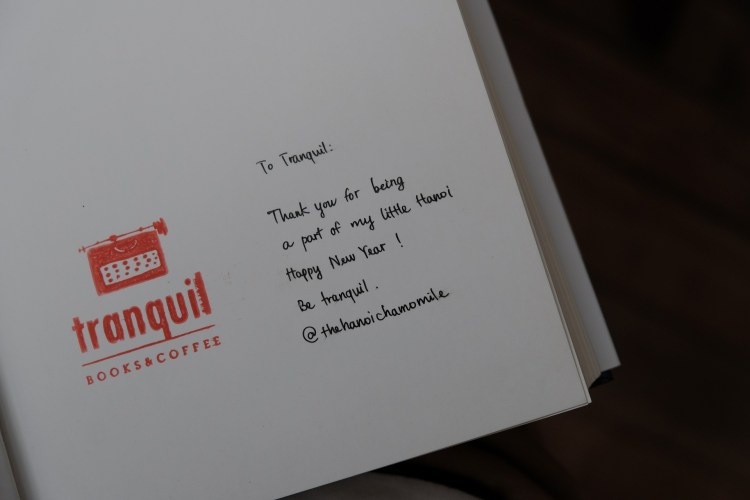 To Tranquil:
Thank you for being
a part of my little Hanoi
Happy New Year !
Be tranquil.
@thehanoichamomile
tranquil
BOOKS&COFFEE